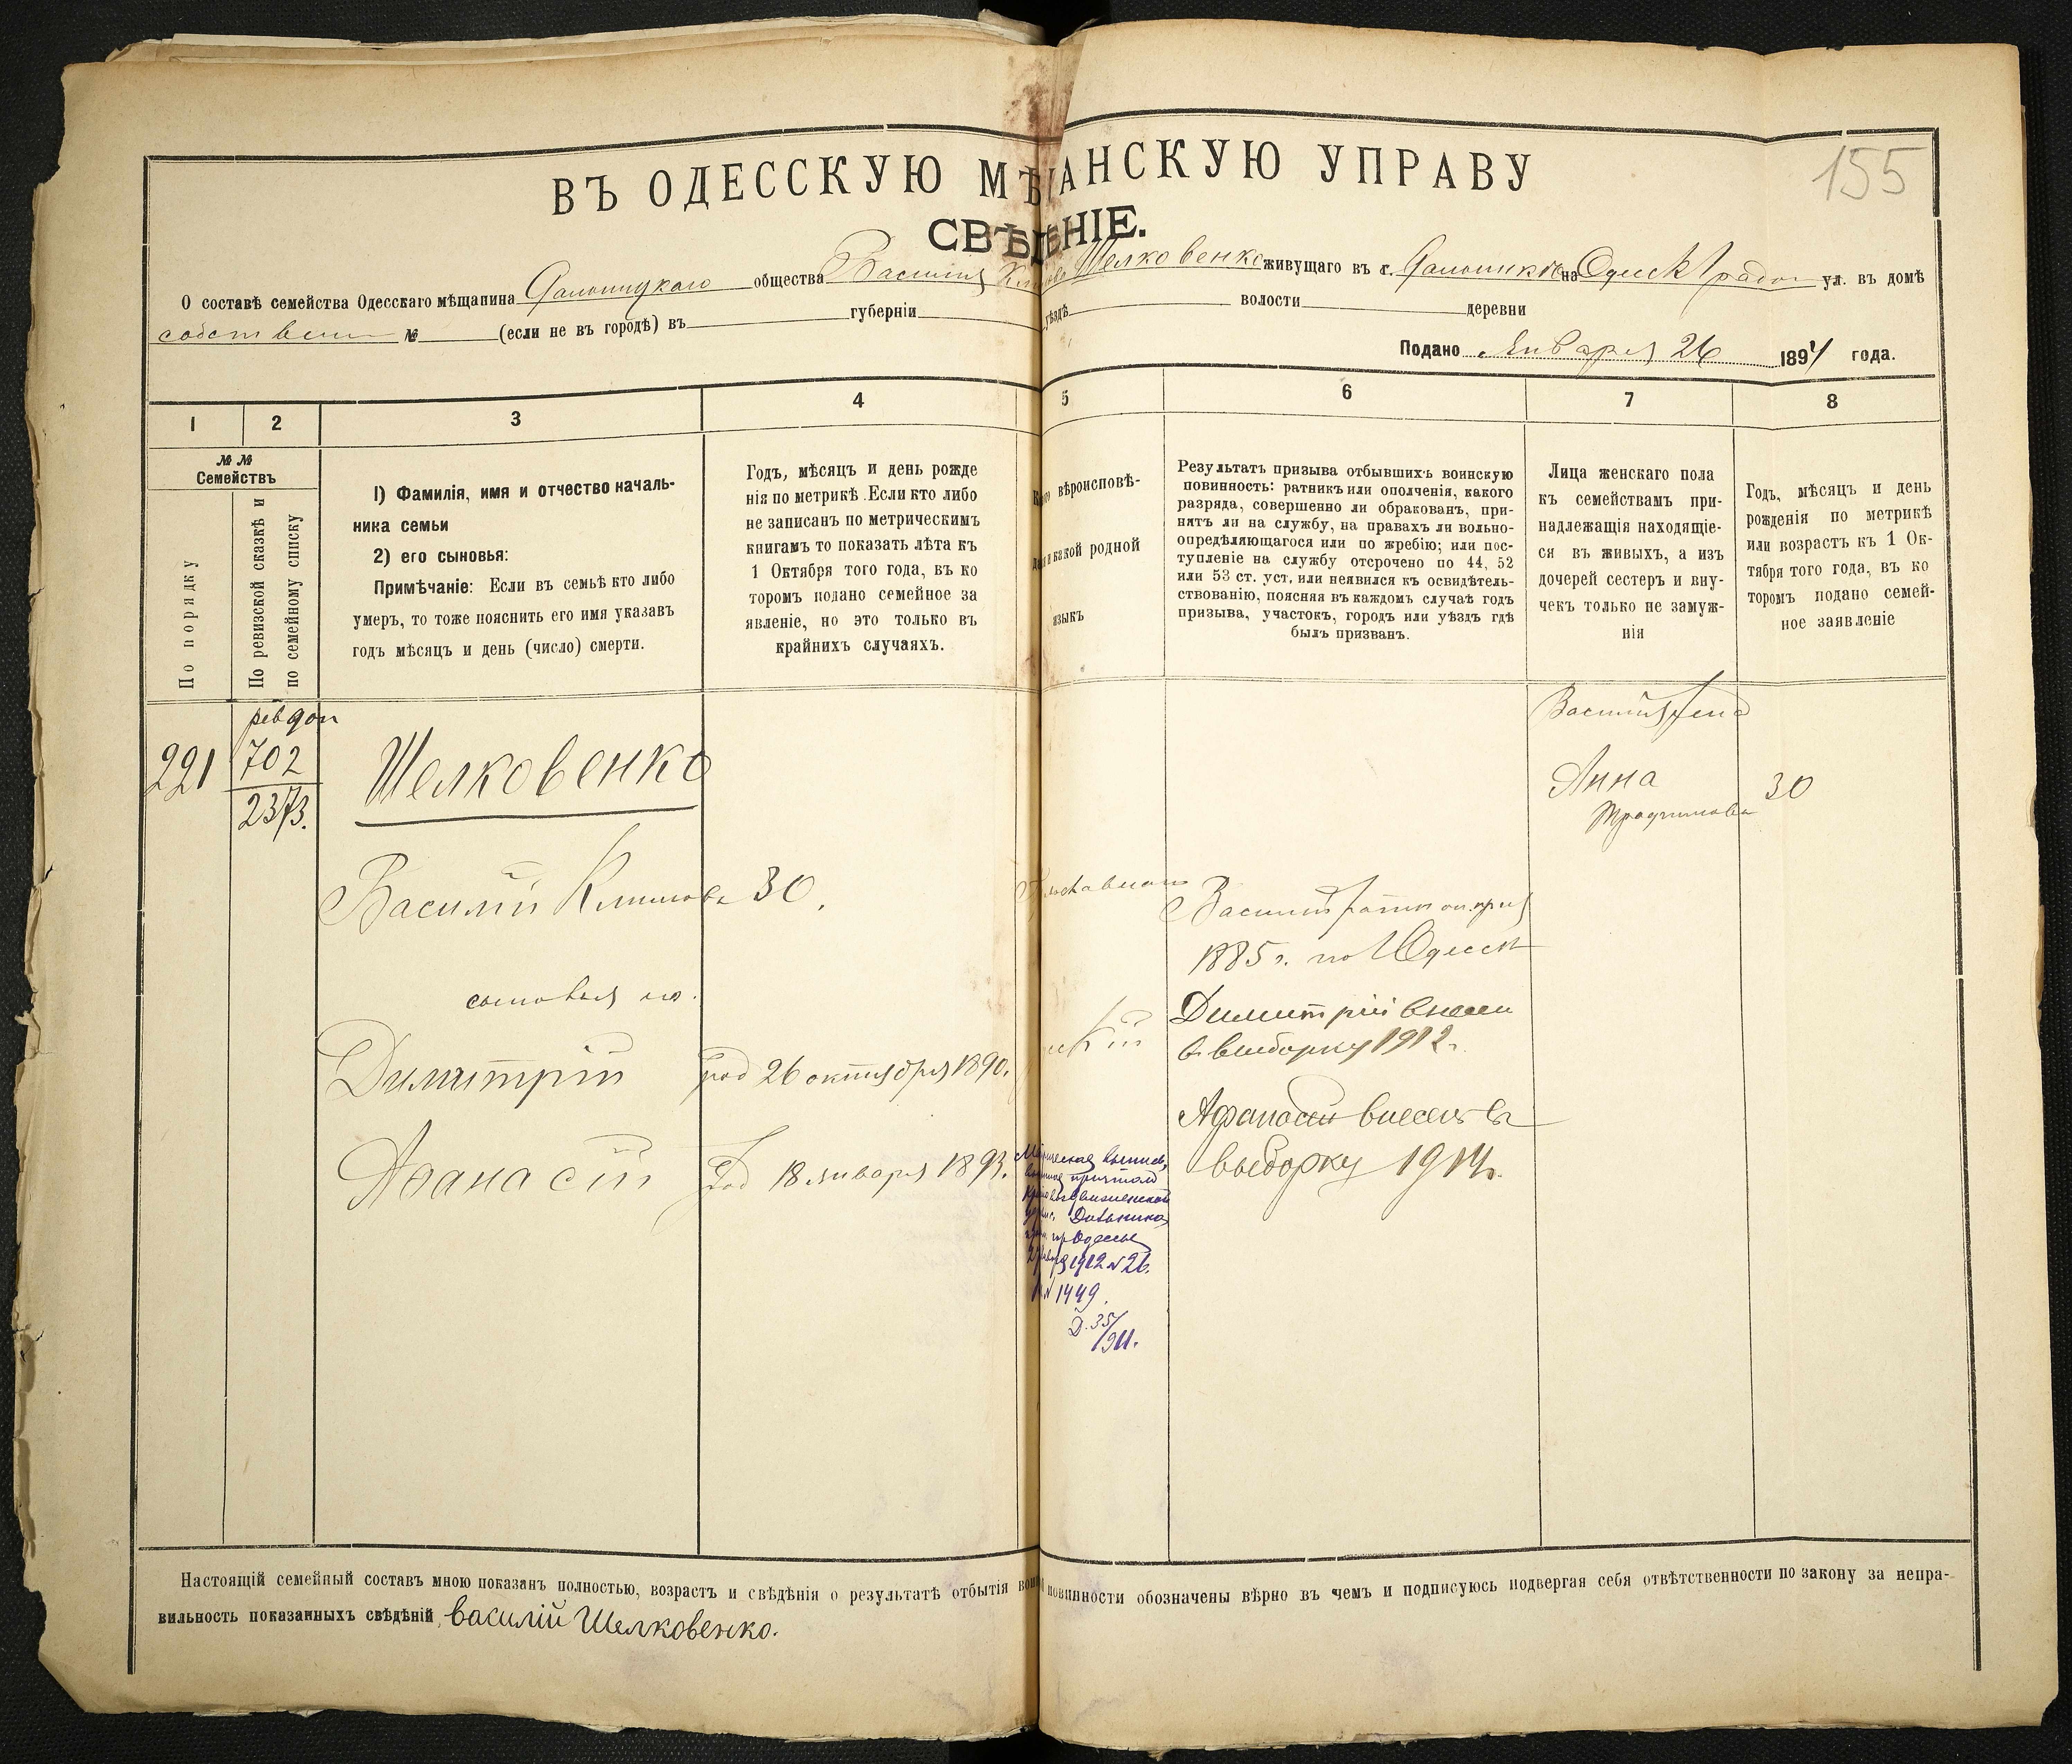 155
ВЪ ОДЕССКУЮ МѢЩАНСКУЮ УПРАВУ
СВѢДѢНІЕ.
О составѣ семейства Одесскаго мѣщанина общества Василія Шелковенко живущаго въ г. на Одесск ул. въ домѣ
собствен № (если не въ городѣ) въ губерніи уѣздѣ волости деревни
Подано Января 26 1894 года.
1 2 3 4 5 6 7 8
№ №
Семействъ
По порядку
По ревизской сказкѣ и
по семейному списку
1) Фамилія, имя и отчество началь-
ника семьи
2) его сыновья:
Примѣчаніе: Если въ семьѣ кто либо
умеръ, то тоже пояснить его имя указавъ
годъ мѣсяцъ и день (число) смерти.
Годъ, мѣсяцъ и день рожде
нія по метрикѣ. Если кто либо
не записанъ по метрическимъ
книгамъ то показать лѣта къ
1 Октября того года, въ ко
торомъ подано семейное за
явленіе, но это только въ
крайнихъ случаяхъ.
вѣроисповѣ-
и какой родной
языкъ
Результатъ призыва отбывшихъ воинскую
повинность: ратникъ или ополченія, какого
разряда, совершенно ли обракованъ, при-
нятъ ли на службу, на правахъ ли вольно-
опредѣляющагося или по жребію; или пос-
тупленіе на службу отсрочено по 44, 52
или 53 ст. уст. или неявился къ освидѣтель-
ствованію, поясняя въ каждомъ случаѣ годъ
призыва, участокъ, городъ или уѣздъ гдѣ
былъ призванъ.
Лица женскаго пола
къ семействамъ при-
надлежащія находящіе-
ся въ живыхъ, а изъ
дочерей сестеръ и вну-
чекъ только не замуж-
нія
Годъ, мѣсяцъ и день
рожденія по метрикѣ
или возрастъ къ 1 Ок-
тября того года, въ ко
торомъ подано семей-
ное заявленіе
рев доп
221 702
2373.
Шелковенко
Василія жена
Анна 30
Василій Климовъ 30.
Василій ратн
1885 г. по Одесск
сыновья его.
Димитрій род 26 октября 1890.
Димитрій внесен
в выборку 1912 г.
Аѳанасій род 18 января 1893.
Афанасій внесенъ въ
выборку 1914 г.
Одессы
1912 № 26.
№ 1449.
Д. 35/911.
Настоящій семейный составъ мною показанъ полностью, возрастъ и свѣдѣнія о результатѣ отбытія воинской повинности обозначены вѣрно въ чемъ и подписуюсь подвергая себя отвѣтственности по закону за непра-
вильность показанныхъ свѣдѣній, Василій Шелковенко.